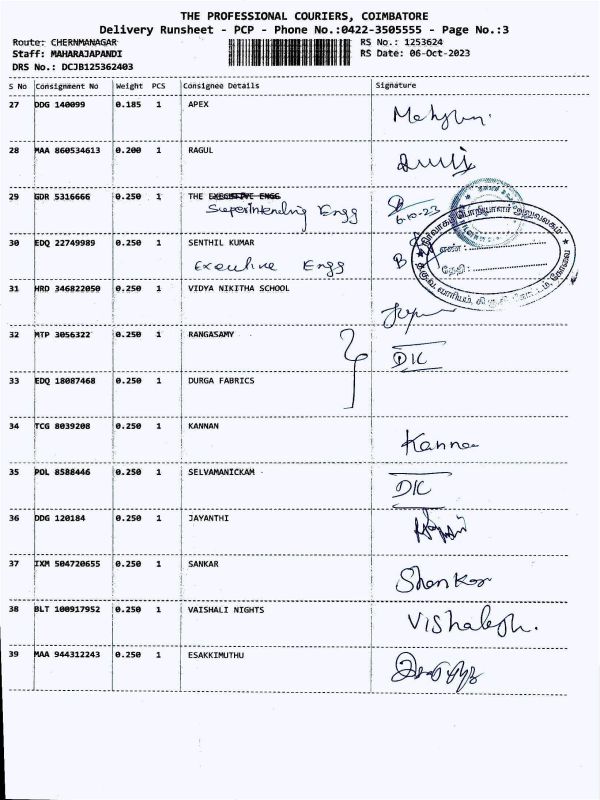 THE PROFESSIONAL COURIERS, COIMBATORE
Delivery Runsheet - PCP - Phone No.:0422-3505555 - Page No.:3
Route: CHERNMANAGAR RS No.: 1253624
Staff: MAHARAJAPANDI RS Date: 06-Oct-2023
DRS No.: DCJB125362403
S No Consignment No Weight PCS Consignee Details Signature
27 DDG 140099 0.185 1 APEX
28 MAA 860534613 0.200 1 RAGUL
29 GDR 5316666 0.250 1 THE EXECUTIVE ENGG
Superintending Engg 6-10-23
30 EDQ 22749989 0.250 1 SENTHIL KUMAR
Executive Engg B
எண் :
தேதி :
31 HRD 346822050 0.250 1 VIDYA NIKITHA SCHOOL
32 MTP 3056322 0.250 1 RANGASAMY DIC
33 EDQ 18087468 0.250 1 DURGA FABRICS
34 TCG 8039208 0.250 1 KANNAN Kanna
35 POL 8588446 0.250 1 SELVAMANICKAM DIC
36 DDG 120184 0.250 1 JAYANTHI
37 IXM 504720655 0.250 1 SANKAR Shankar
38 BLT 100917952 0.250 1 VAISHALI NIGHTS Vishalesh.
39 MAA 944312243 0.250 1 ESAKKIMUTHU